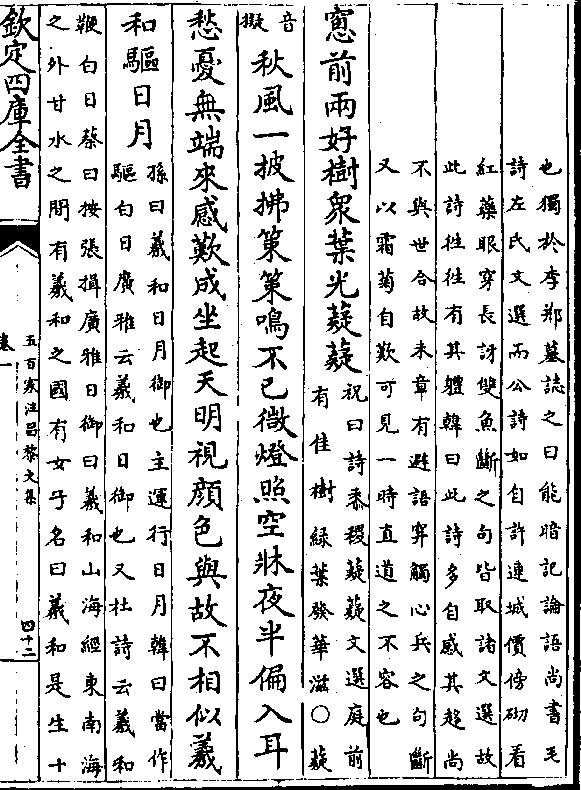 也獨於李郱墓誌之曰能暗記論語尚書毛
詩左氏文選而公詩如自許連城價傍砌看
紅藥眼穿長訝雙魚斷之句皆取諸文選故
此詩往往有其體韓曰此詩多自感其趨尚
不與世合故末章有避語穽觸心兵之句斷
又以霜菊自歎可見一時直道之不容也
窻前兩好樹衆葉光薿薿
祝曰詩黍稷薿薿文選庭前
有佳樹緑葉發華滋○薿
音
擬
秋風一披拂策策鳴不已微燈照空牀夜半偏入耳
愁憂無端來感歎成坐起天明視顔色與故不相似羲
和驅日月
孫曰羲和日月御也主運行日月韓曰當作
驅白日廣雅云羲和日御也又杜詩云羲和
鞭白日蔡曰按張揖廣雅日御曰羲和山海經東南海
之外甘水之間有羲和之國有女子名曰羲和是生十
欽定四庫全書
五百家注昌黎文集
卷一
四十二